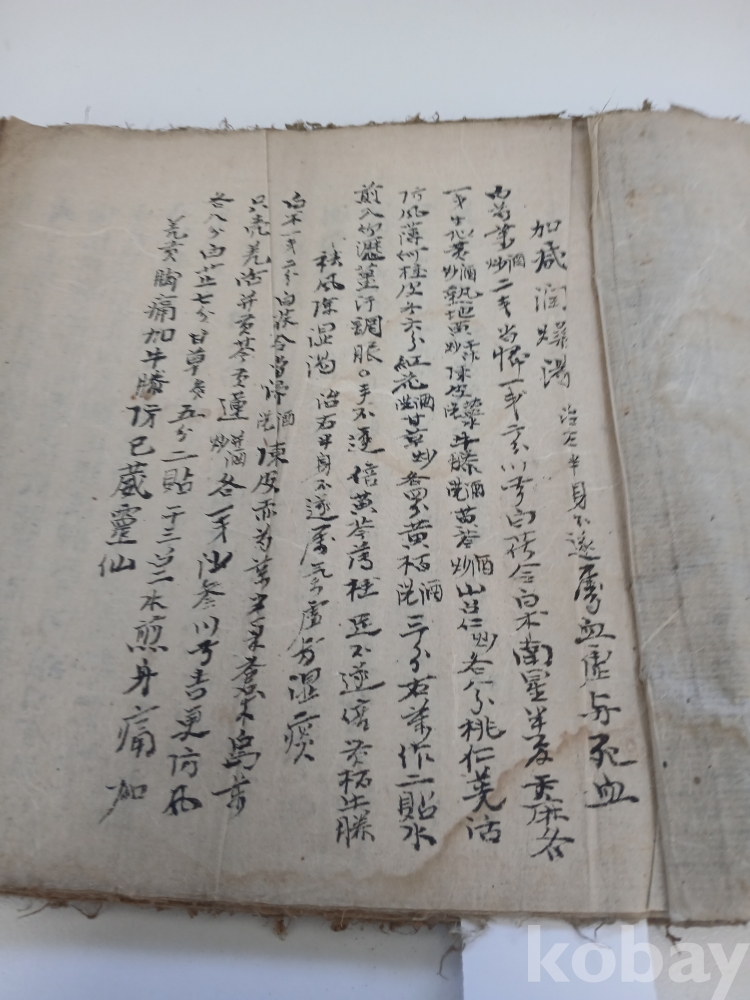 加减潤燥湯 治左半身不遂屬血虛与死血
白芍藥酒炒二戔当归一戔二分川芎白茯令白朮南星半夏天麻各
一戔生地黃酒炒熟地黃干炒陳皮牛膝酒洗黃芩酒炒山査仁炒各八分桃仁羌活
防風薄桂各六分紅花酒洗甘草炒各四分黃栢酒洗三分右藥作二貼水
煎入竹瀝薑汁調服○手不遂倍黃芩薄桂足不遂倍黃栢牛膝
祛風除湿湯 治右半身不遂屬氣虛与湿痰
白朮一戔二分白茯令当帰酒洗陳皮赤芍藥半夏蒼朮烏藥
只壳羌活黃芩黃連酒炒各一戔沙參川芎吉更防風
各八分白芷七分甘草炙五分二貼干三召二水煎身痛加
羌黃胸痛加牛膝防已葳靈仙
kobay